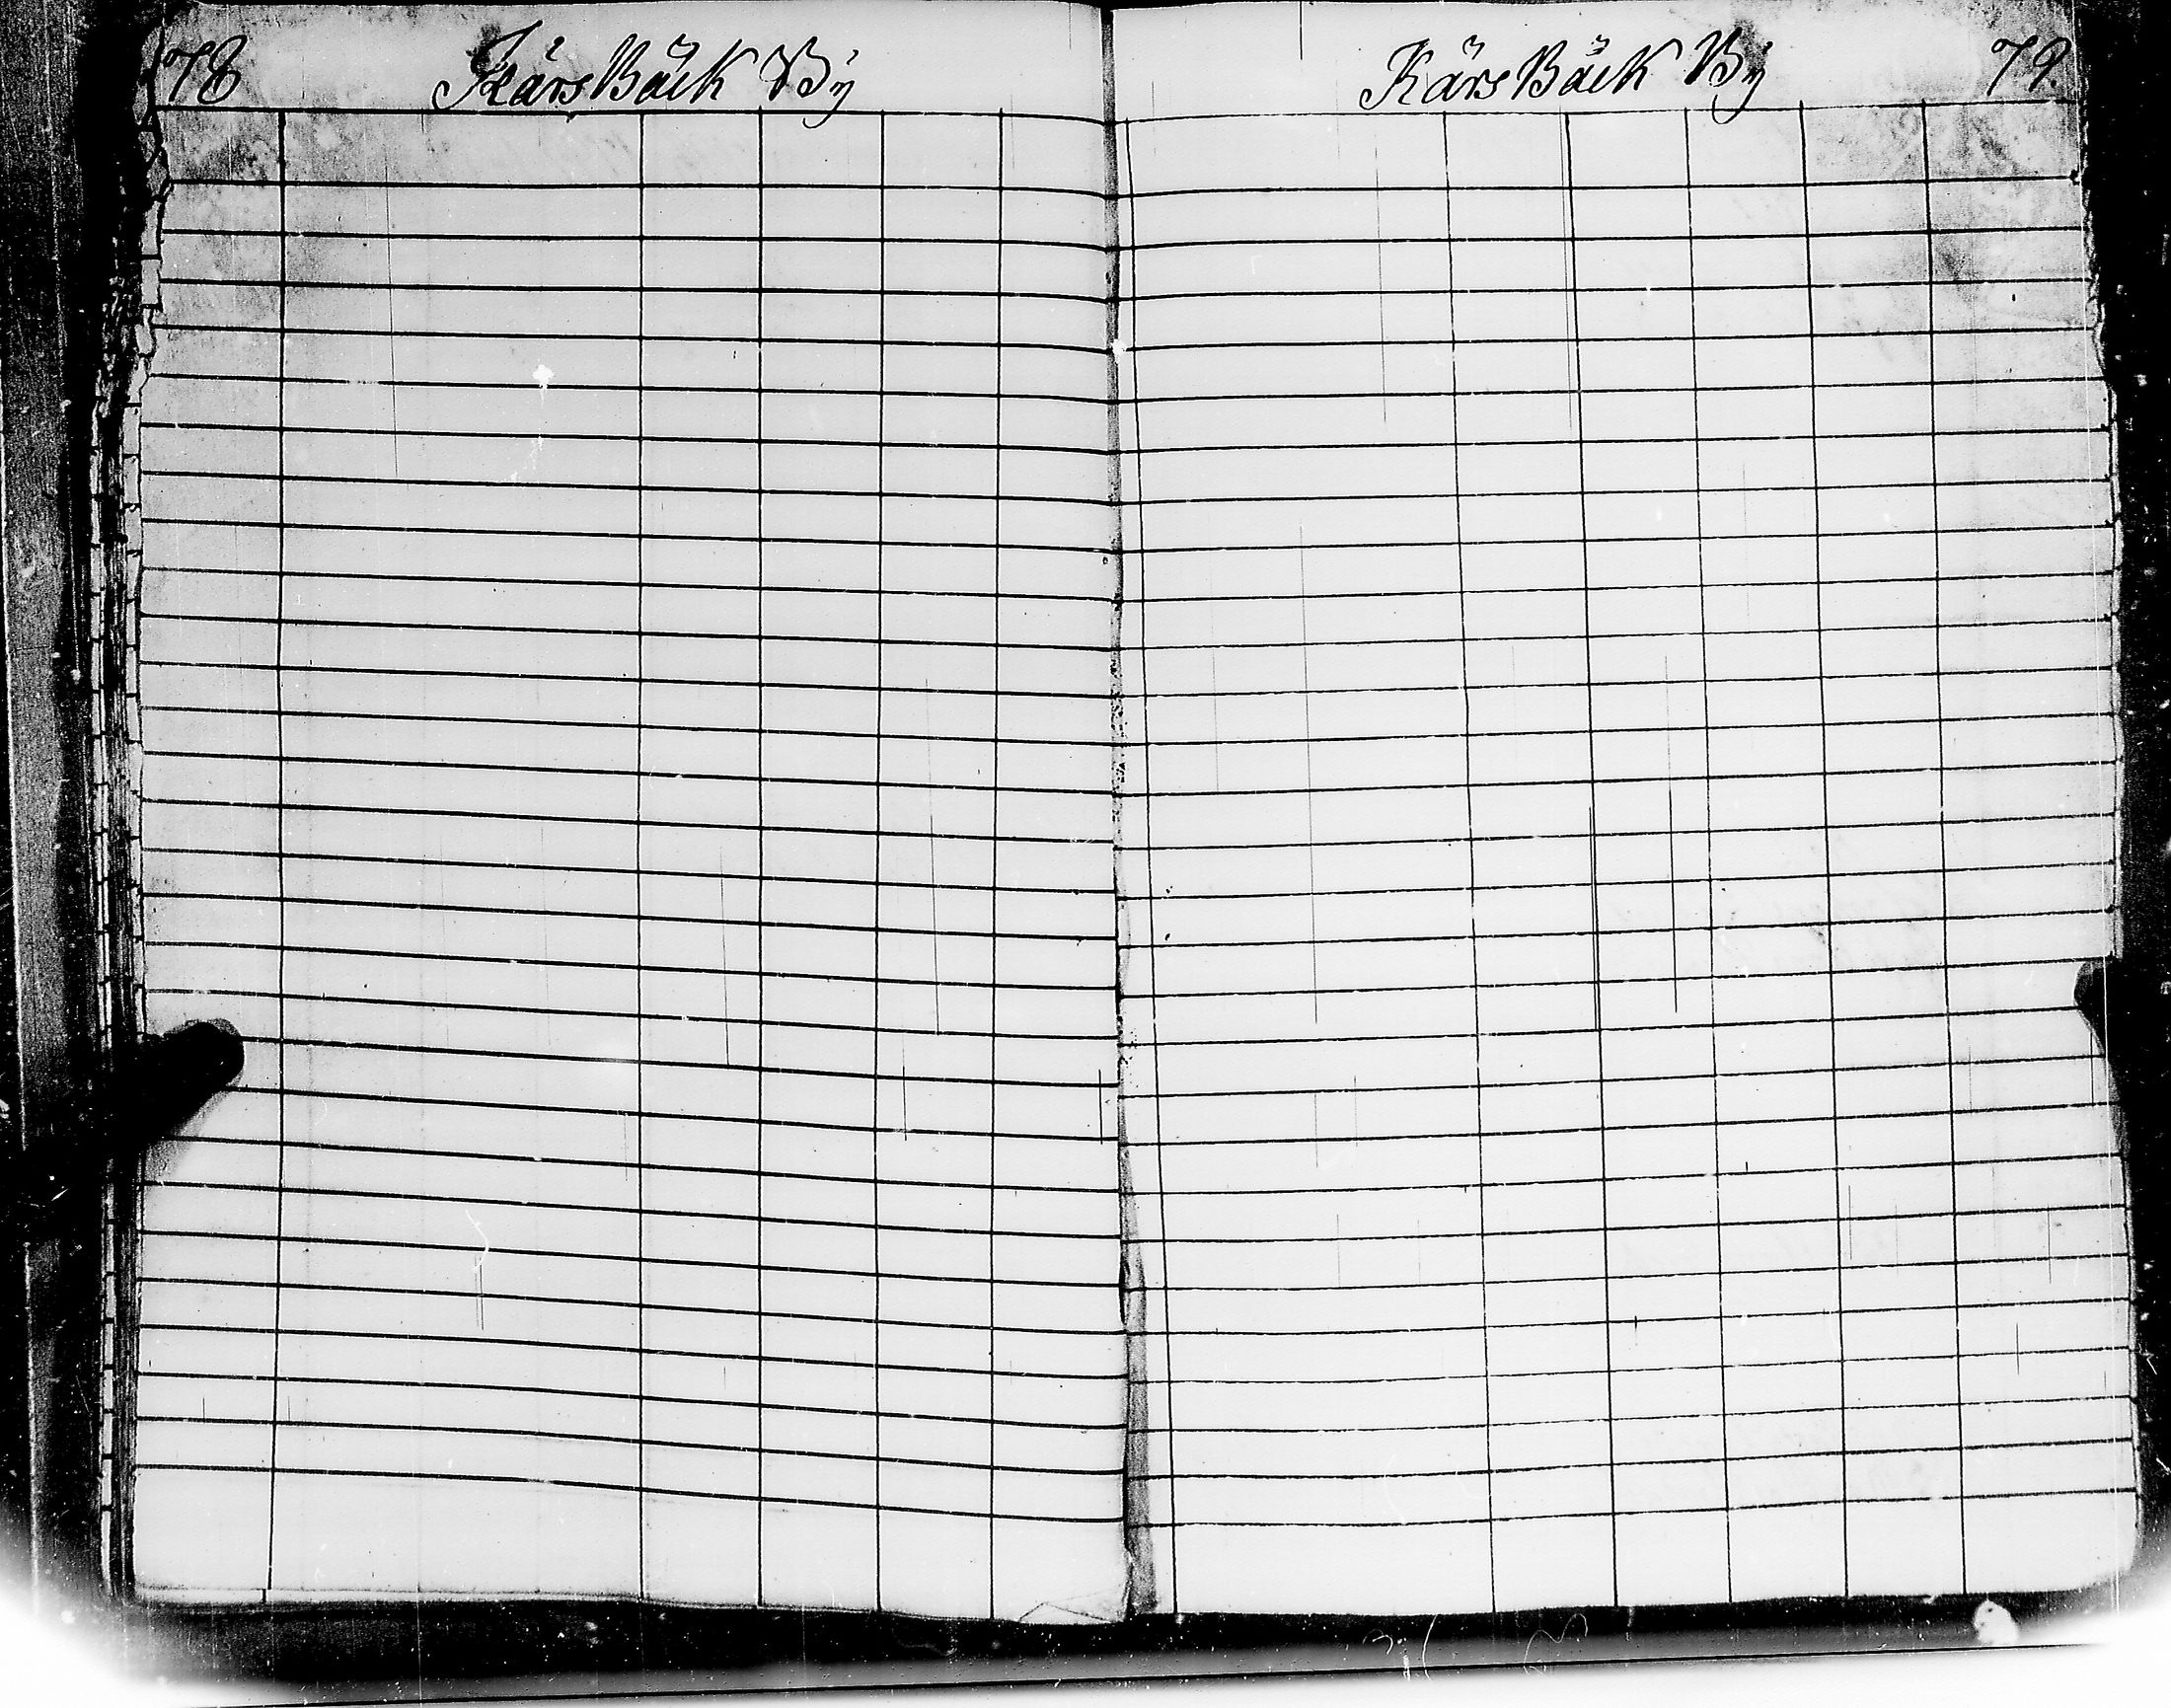 78 Kärs Bäck Bÿ
Kärs Bäck Bÿ 79.